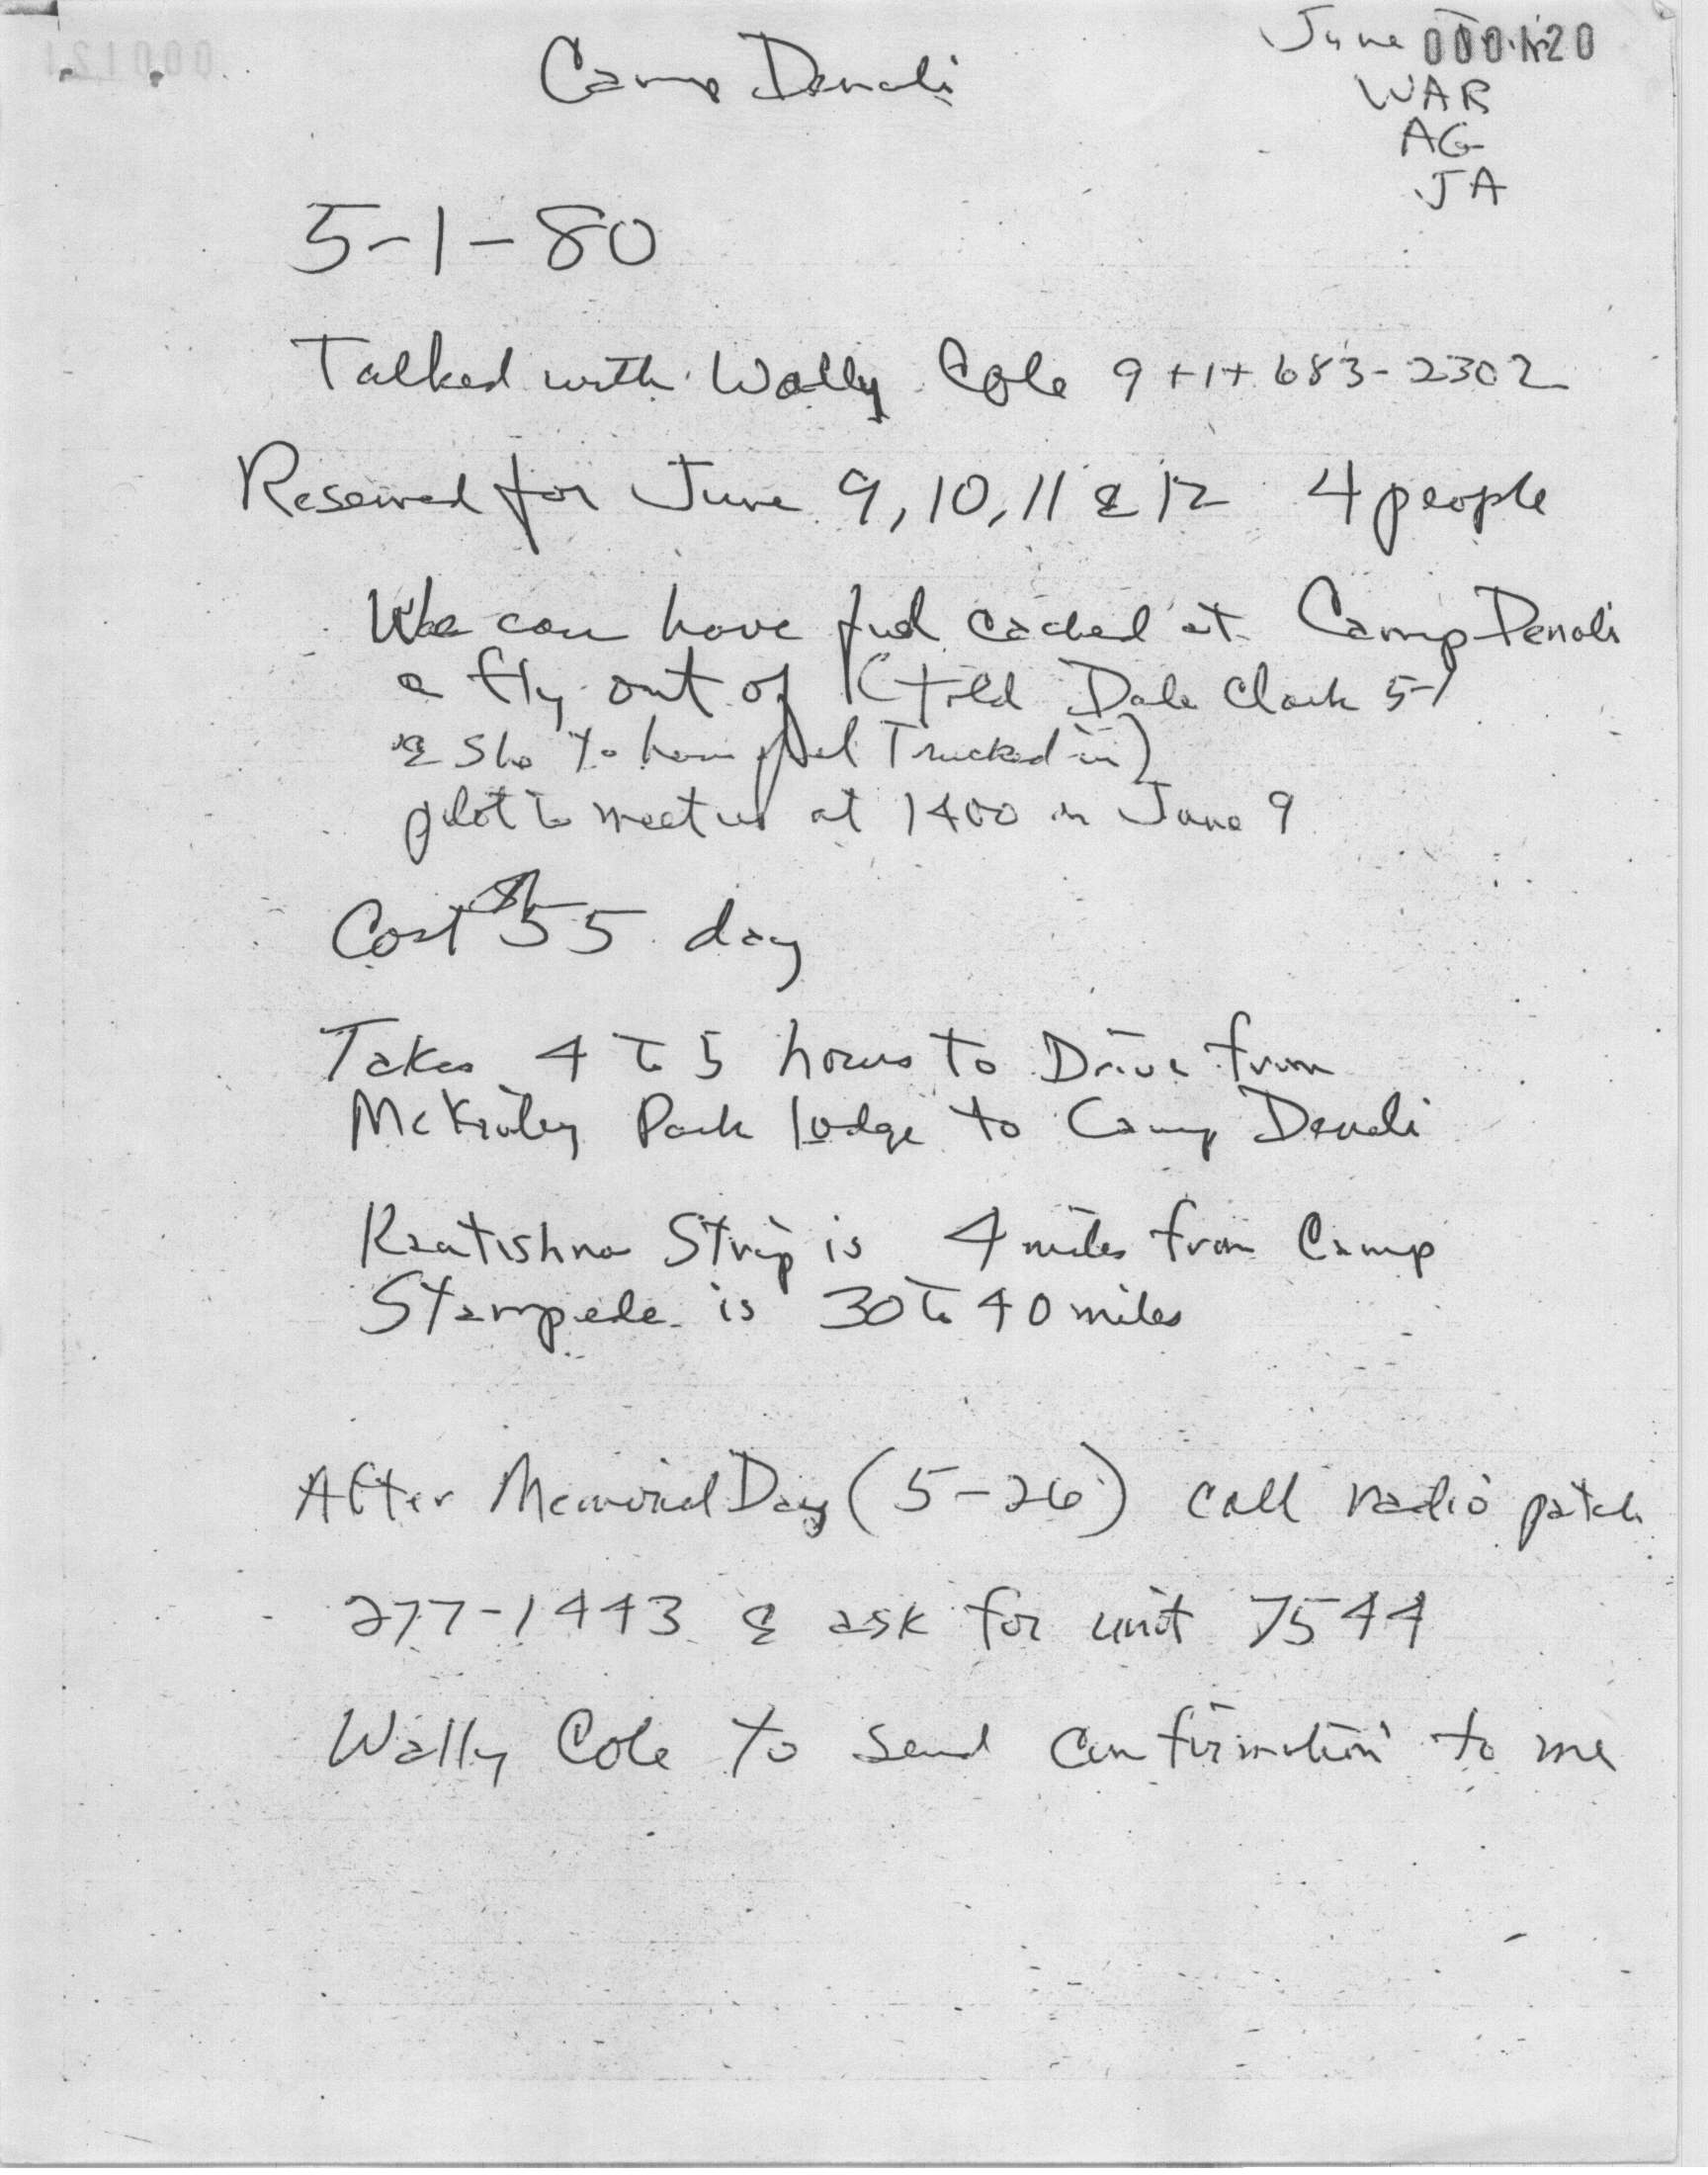 Camp Denali
June 000120
WAR
AG
JA
5-1-80
Talked with Wally Cole 9+1+683-2302
Reserved for June 9, 10, 11 & 12 4 people
We can have fuel cached at Camp Denali
& fly out of K (told Dale Clark 5-1
& She to have fuel Trucked in)
pilot to meet us at 1400 on June 9
Cost $55 day
Takes 4 to 5 hours to Drive from
McKinley Park lodge to Camp Denali
Kantishna Strip is 4 miles from Camp
Stampede is 30 to 40 miles
After Memorial Day (5-26) call radio patch
277-1443 & ask for unit 7544
Wally Cole to send confirmation to me